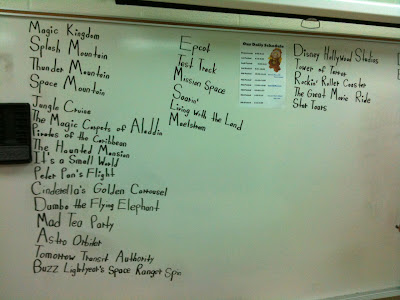 Magic Kingdom
Splash Mountain
Thunder Mountain
Space Mountain
Jungle Cruise
The Magic Carpets of Aladdin
Pirates of the Caribbean
The Haunted Mansion
It's a Small World
Peter Pan's Flight
Cinderella's Golden Carrousel
Dumbo the Flying Elephant
Mad Tea Party
Astro Orbiter
Tomorrow Transit Authority
Buzz Lightyear's Space Ranger Spin
Epcot
Test Track
Mission Space
Soarin'
Living With the Land
Maelstrom
Our Daily Schedule
Disney Hollywood Studios
Tower of Terror
Rockin' Roller Coaster
The Great Movie Ride
Star Tours